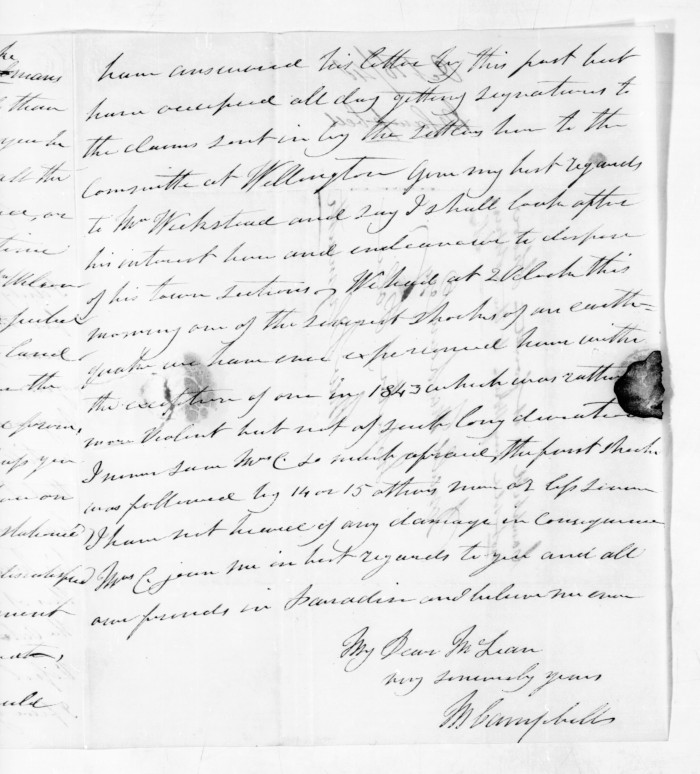 have answered his letter by this post but
have occupied all day getting signatures to
the claims sent in by the settlers here to the
Committe at Wellington Give my best regards
to Mr Wickstead and say I shall look after
his interest here and endeavour to dispose
of his town sections. We had at 2 OClock this
morning one of the severest shocks of an earth-
quake we have ever experienced here with
the exception of one in 1843 which was rather
more violent but not of such long duration
I never saw Mrs C so much afraid, the first shock
was followed by 14 or 15 others more or less severe
I have not heard of any damage in consequence
Mrs C. joins me in best regards to you and all
our friends in Paradise and believe me ever
My Dear McLean
very sincerely yours
M Campbell
mans
than
you
all the
or
land
the
you
on
stationed